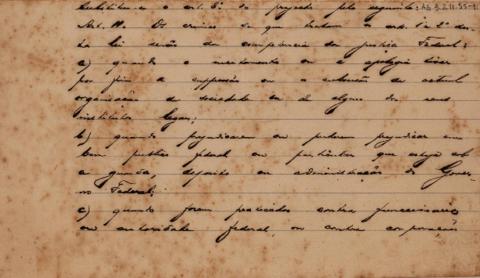 Substitua-se o art. 5º do projecto pelo seguinte:
Art. Os crimes de que tratam o art. 1 e 2 des-
ta lei serão da competencia da justiça Federal:
a) quando o incitamento ou a apologia tiver
por fim a suppressão ou a subversão da actual
organisação da sociedade ou de algum dos seus
institutos legaes;
b) quando prejudicarem ou puderem prejudicar um
bem publico federal ou particular que esteja sob
a guarda, deposito ou administração do Gover-
no Federal;
c) quando forem praticados contra funccionario
ou autoridade federal, ou contra corporação